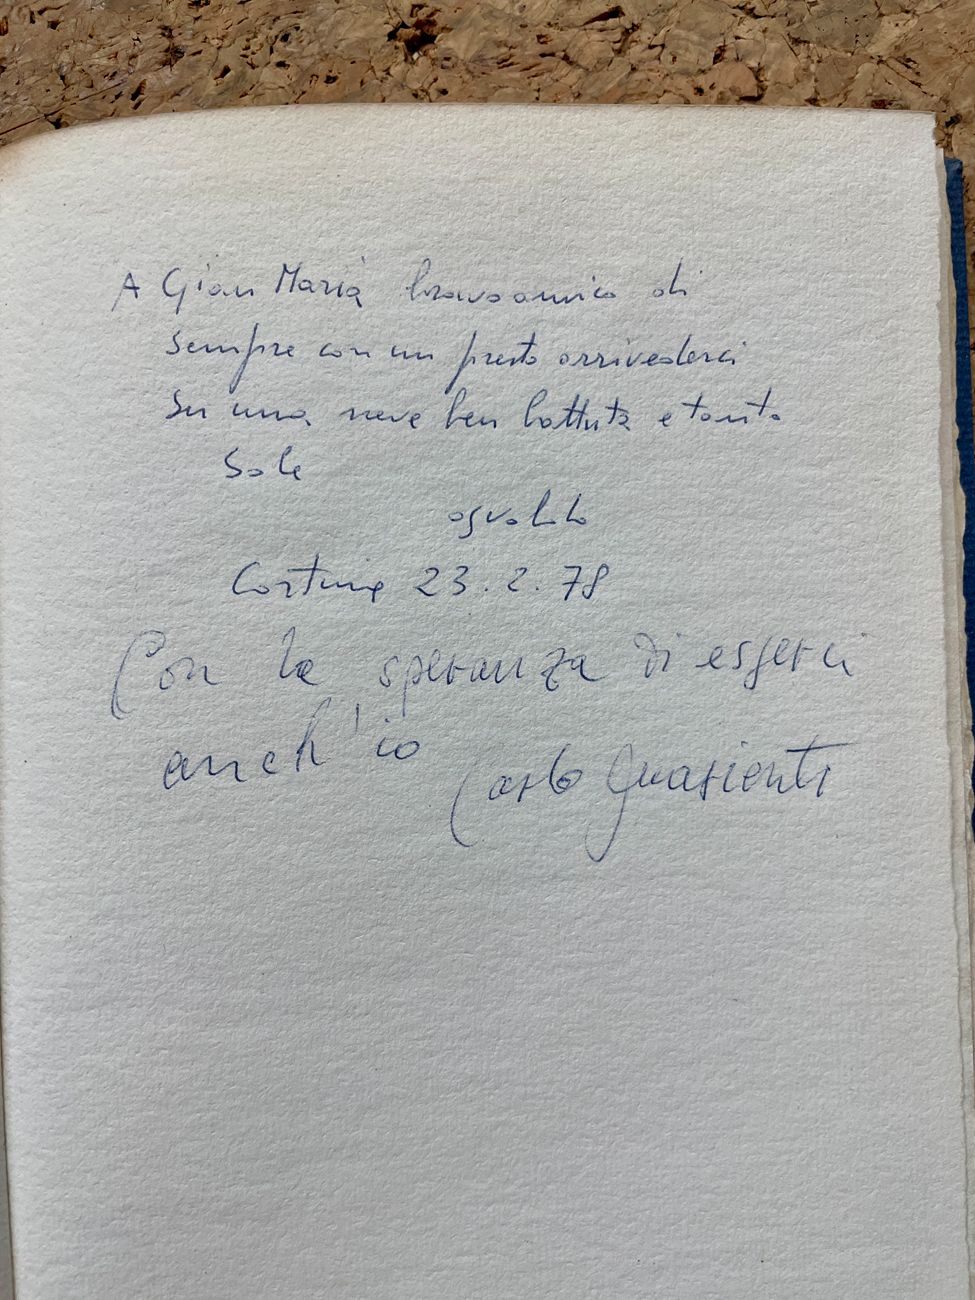 A Gian Maria bravo amico di
sempre con un presto arrivederci
su una neve ben battuta e tanto
sole
osvaldo
Cortina 23.2.78
Con la speranza di esserci
anch'io Carlo Guarienti